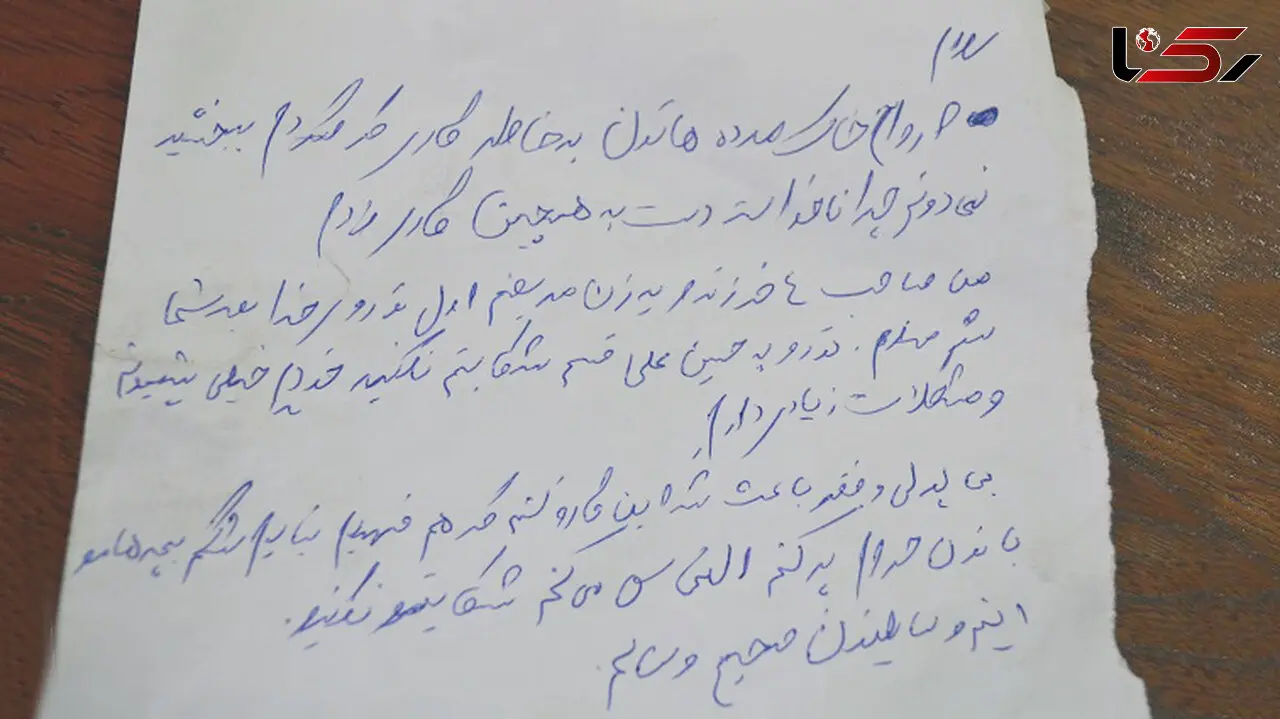 رکنا
سلام
ارواح خاک مرده هاتون به خاطر کاری که کردم ببخشید
نمی دونم چرا ناخواسته دست به همچین کاری زدم
من صاحب ۴ فرزندم و یه زن مریضم اول تو روی خدا بعد شما
شرمندم . تورو به حسین علی قسم شکایتم نکنید خودم خیلی پشیمونم
و مشکلات زیادی دارم
بی پولی و فقر باعث شد این کارو کنم که هم فهمیدم نباید شکم بچه هامو
با نون حروم پر کنم التماس می کنم شکایتمو نکنید.
اینم وسایلتون صحیح و سالم.